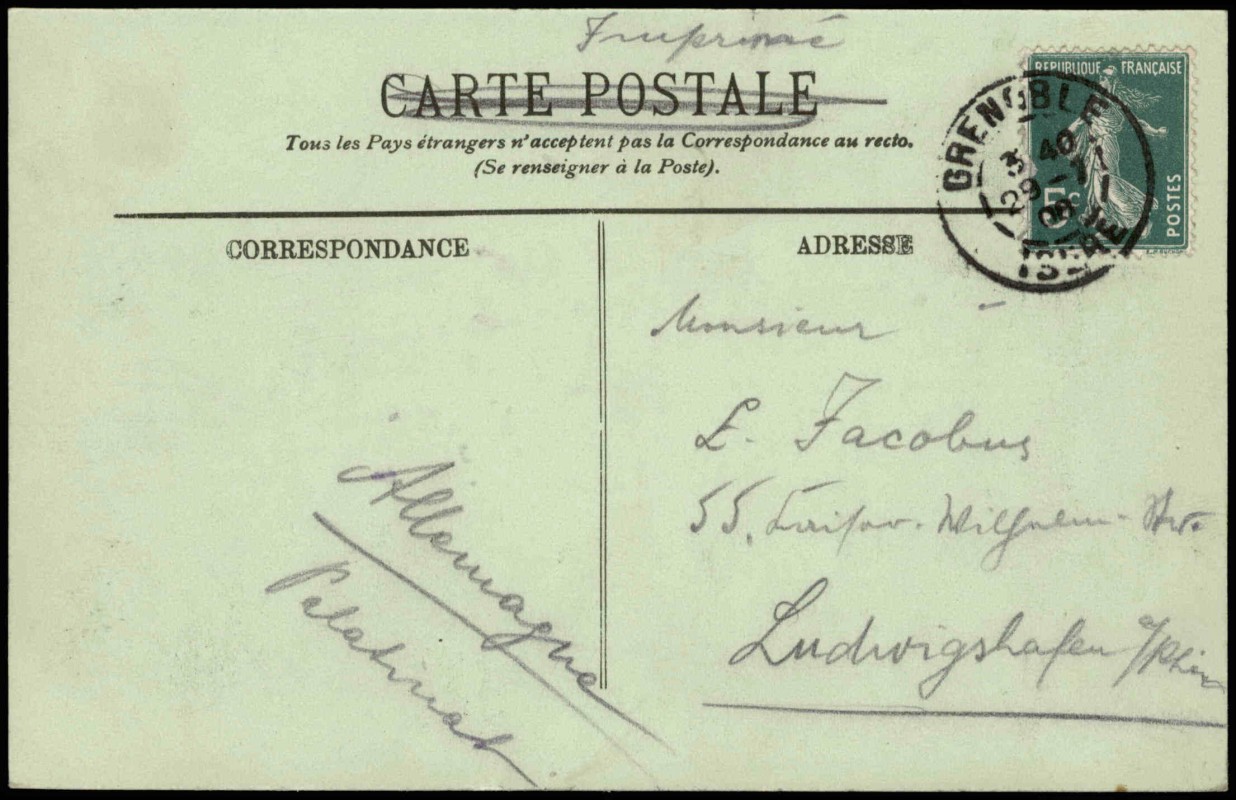 Imprimé
CARTE POSTALE
Tous les Pays étrangers n'acceptent pas la Correspondance au recto.
(Se renseigner à la Poste).
REPUBLIQUE FRANÇAISE
5c
POSTES
GRENOBLE
3 40
29 - 7
08
ISERE
CORRESPONDANCE
ADRESSE
Monsieur
L. Jacobus
55, Kaiser-Wilhelm-Str.
Ludwigshafen a/Rhin
Allemagne
Palatinat